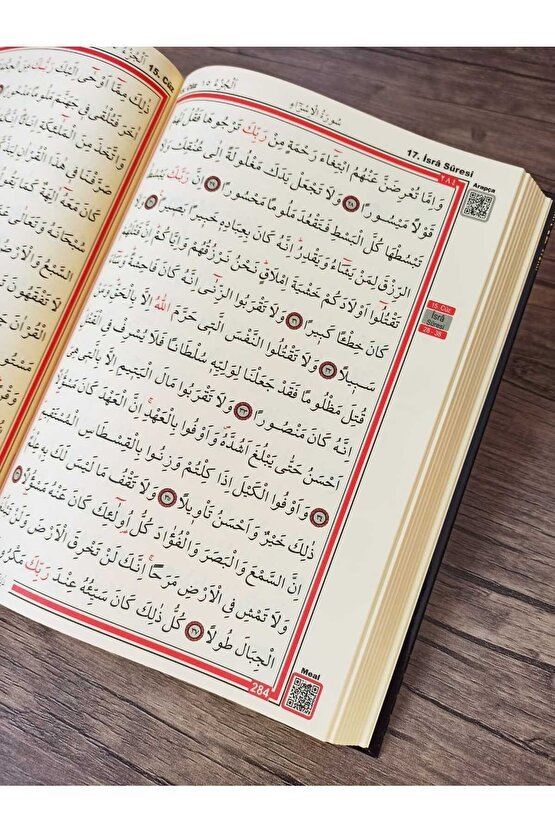 15. Cüz
اَلْجُزْءُ
ذٰلِكَ مِمَّٓا اَوْحٰٓى اِلَيْكَ رَبُّكَ مِنَ
اٰخَرَ فَتُلْقٰى فِي جَهَنَّمَ مَلُومًا
وَاتَّخَذَ مِنَ الْمَلٰٓئِكَةِ
صَرَّفْنَا فِي هٰذَا الْقُرْاٰنِ
كَانَ مَعَهُٓ اٰلِهَةٌ
سُبْحَانَهُ وَتَعَالٰى
السَّبْعُ وَالْاَرْضُ
لَا تَفْقَهُونَ
الْقُرْاٰنَ
مَسْتُورًا
اَلْجُزْءُ ١٥
سُورَةُ الْاِسْرَٓاءِ
17. İsrâ Sûresi
٢٨٤
Arapça
وَاِمَّا تُعْرِضَنَّ عَنْهُمُ ابْتِغَٓاءَ رَحْمَةٍ مِنْ رَبِّكَ تَرْجُوهَا فَقُلْ لَهُمْ
قَوْلًا مَيْسُورًا ﴿٢٨﴾ وَلَا تَجْعَلْ يَدَكَ مَغْلُولَةً اِلٰى عُنُقِكَ وَلَا
تَبْسُطْهَا كُلَّ الْبَسْطِ فَتَقْعُدَ مَلُومًا مَحْسُورًا ﴿٢٩﴾ اِنَّ رَبَّكَ يَبْسُطُ
الرِّزْقَ لِمَنْ يَشَٓاءُ وَيَقْدِرُ اِنَّهُ كَانَ بِعِبَادِهِ خَبِيرًا بَصِيرًا ﴿٣٠﴾ وَلَا
تَقْتُلُٓوا اَوْلَادَكُمْ خَشْيَةَ اِمْلَاقٍ نَحْنُ نَرْزُقُهُمْ وَاِيَّاكُمْ اِنَّ قَتْلَهُمْ
كَانَ خِطْـًٔا كَبِيرًا ﴿٣١﴾ وَلَا تَقْرَبُوا الزِّنٰٓى اِنَّهُ كَانَ فَاحِشَةً وَسَٓاءَ
سَبِيلًا ﴿٣٢﴾ وَلَا تَقْتُلُوا النَّفْسَ الَّتِي حَرَّمَ اللّٰهُ اِلَّا بِالْحَقِّ وَمَنْ
قُتِلَ مَظْلُومًا فَقَدْ جَعَلْنَا لِوَلِيِّهِ سُلْطَانًا فَلَا يُسْرِفْ فِي الْقَتْلِ
اِنَّهُ كَانَ مَنْصُورًا ﴿٣٣﴾ وَلَا تَقْرَبُوا مَالَ الْيَتِيمِ اِلَّا بِالَّتِي هِيَ
اَحْسَنُ حَتّٰى يَبْلُغَ اَشُدَّهُ وَاَوْفُوا بِالْعَهْدِ اِنَّ الْعَهْدَ كَانَ مَسْؤُلًا
﴿٣٤﴾ وَاَوْفُوا الْكَيْلَ اِذَا كِلْتُمْ وَزِنُوا بِالْقِسْطَاسِ الْمُسْتَقِيمِ
ذٰلِكَ خَيْرٌ وَاَحْسَنُ تَأْوِيلًا ﴿٣٥﴾ وَلَا تَقْفُ مَا لَيْسَ لَكَ بِهِ عِلْمٌ
اِنَّ السَّمْعَ وَالْبَصَرَ وَالْفُؤَادَ كُلُّ اُو۬لٰٓئِكَ كَانَ عَنْهُ مَسْؤُلًا ﴿٣٦﴾
وَلَا تَمْشِ فِي الْاَرْضِ مَرَحًا اِنَّكَ لَنْ تَخْرِقَ الْاَرْضَ وَلَنْ تَبْلُغَ
الْجِبَالَ طُولًا ﴿٣٧﴾ كُلُّ ذٰلِكَ كَانَ سَيِّئُهُ عِنْدَ رَبِّكَ مَكْرُوهًا
15. Cüz
İsrâ
Sûresi
28 - 38
Meal
284